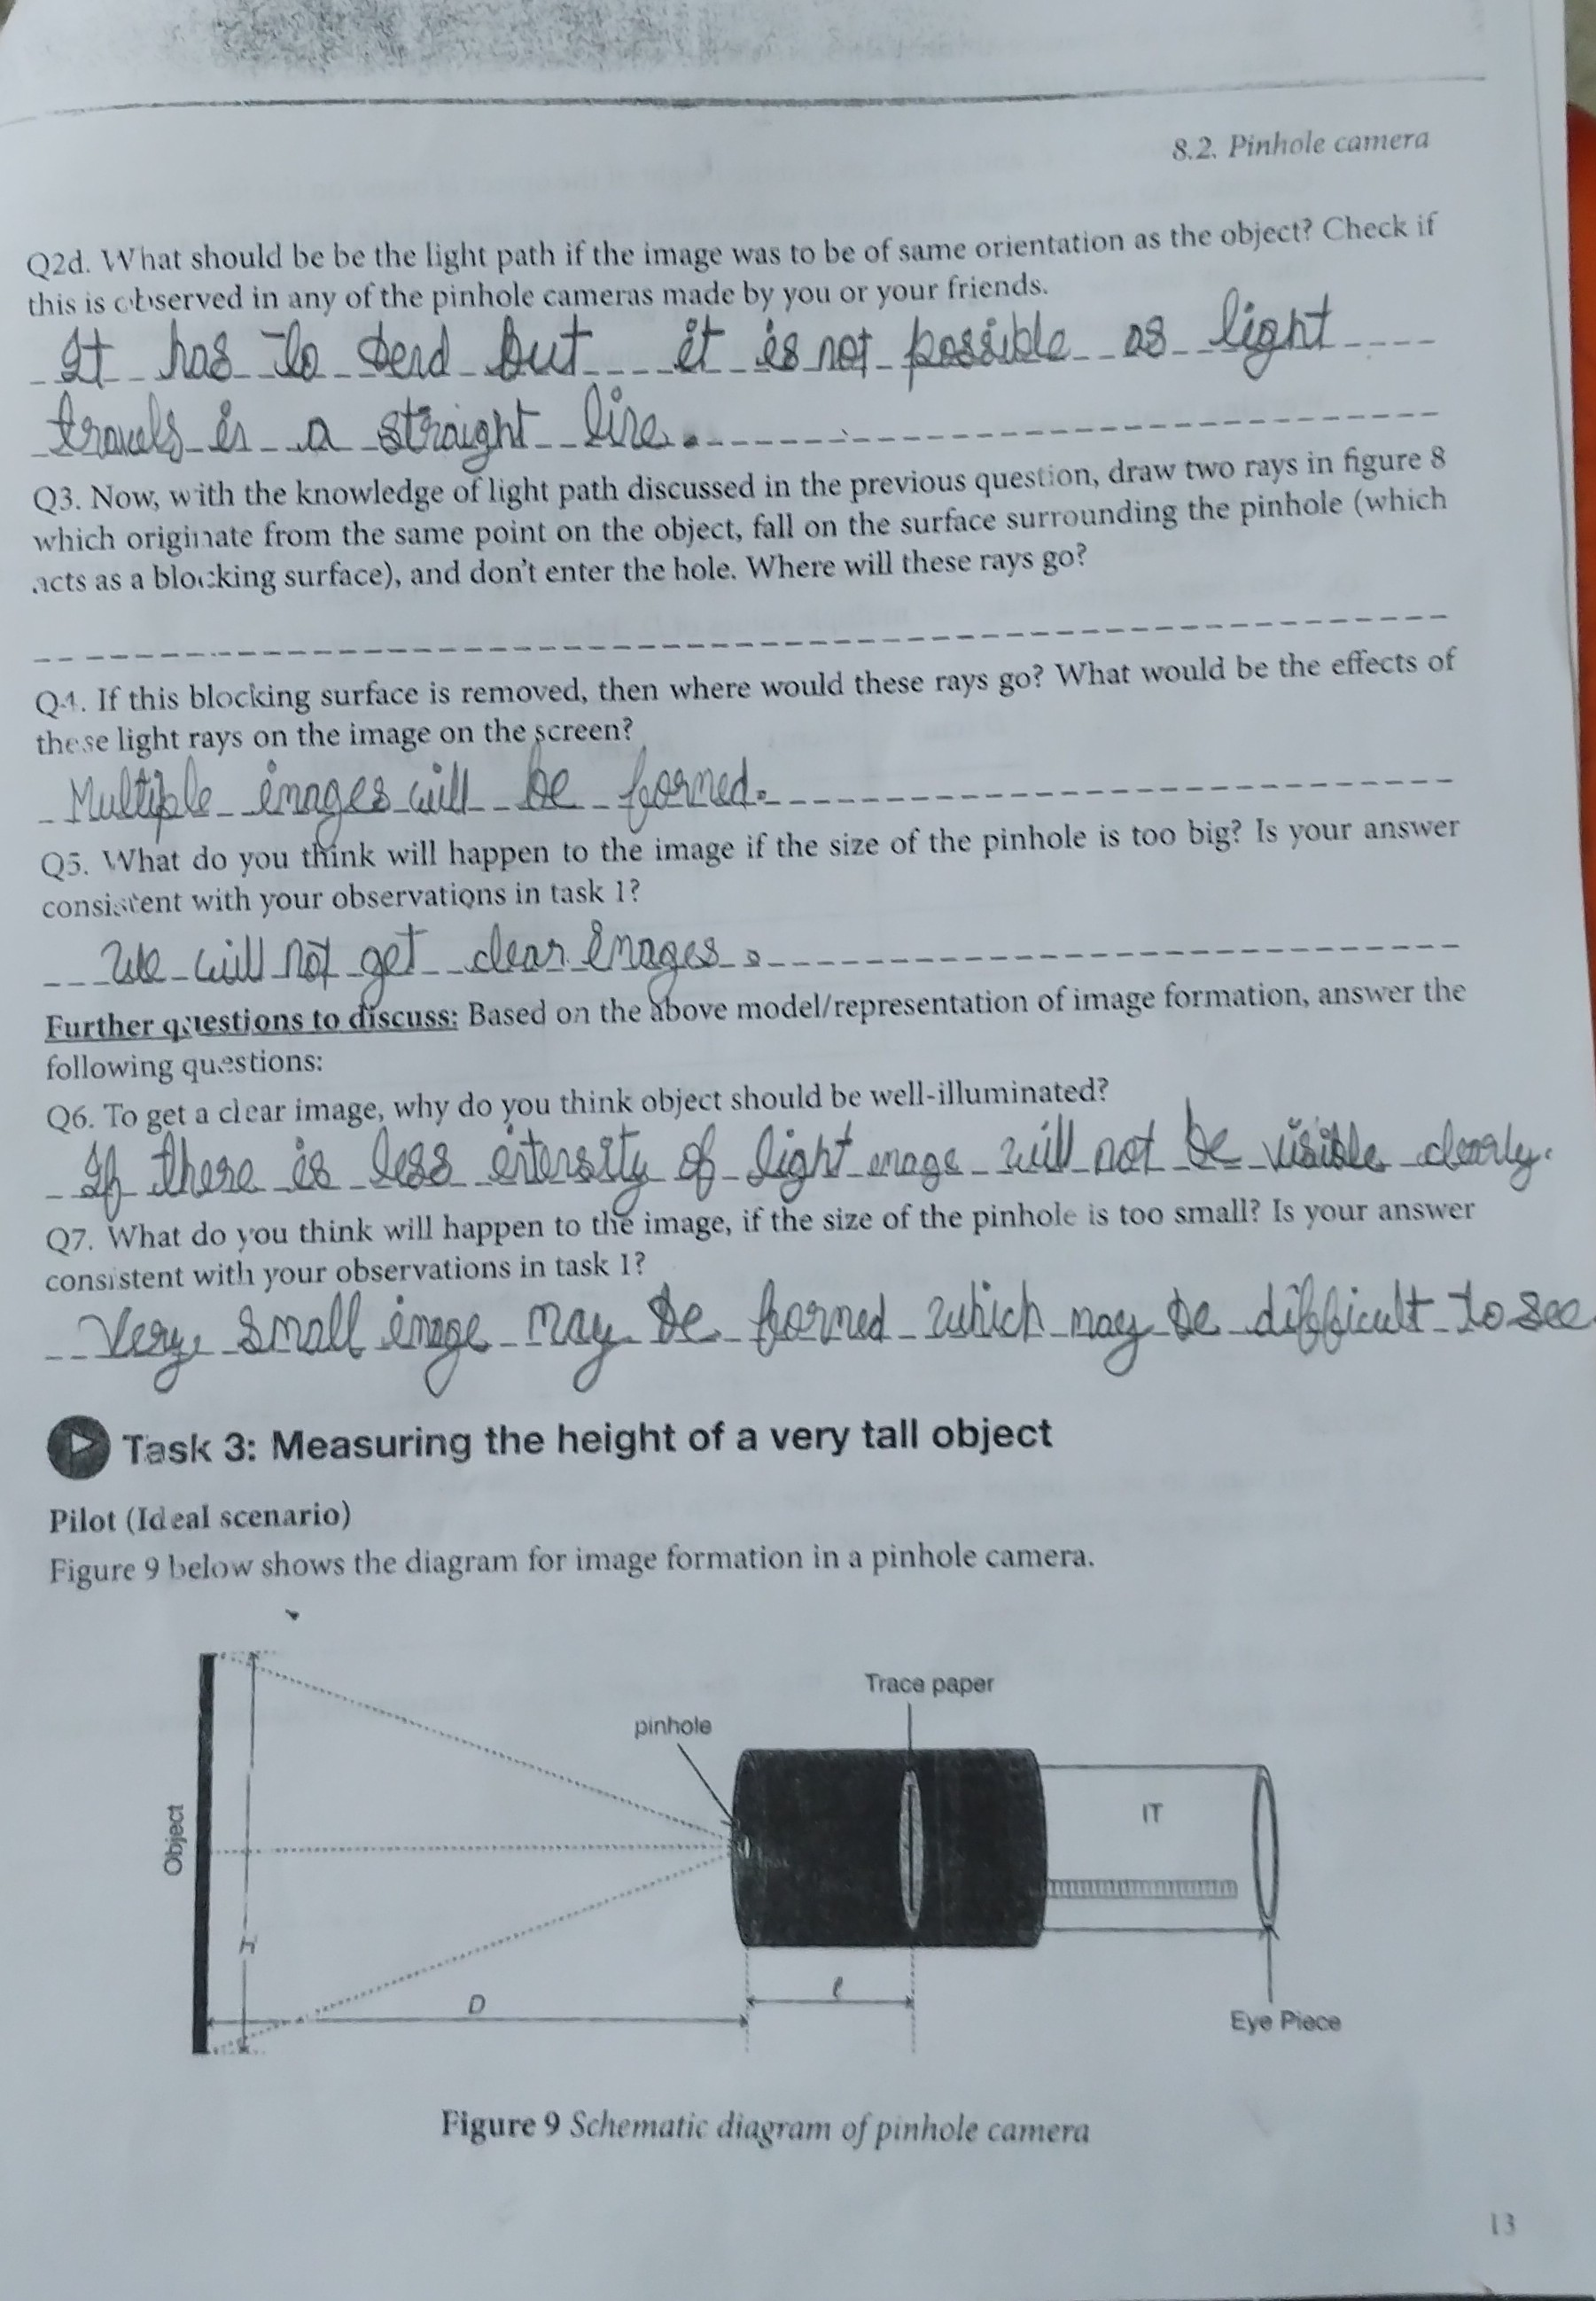 8.2. Pinhole camera
Q2d. What should be be the light path if the image was to be of same orientation as the object? Check if
this is observed in any of the pinhole cameras made by you or your friends.
It has to bend but it is not possible as light
travels in a straight line.
Q3. Now, with the knowledge of light path discussed in the previous question, draw two rays in figure 8
which originate from the same point on the object, fall on the surface surrounding the pinhole (which
acts as a blocking surface), and don't enter the hole. Where will these rays go?
Q4. If this blocking surface is removed, then where would these rays go? What would be the effects of
these light rays on the image on the screen?
Multiple images will be formed.
Q5. What do you think will happen to the image if the size of the pinhole is too big? Is your answer
consistent with your observations in task 1?
We will not get clear images.
Further questions to discuss: Based on the above model/representation of image formation, answer the
following questions:
Q6. To get a clear image, why do you think object should be well-illuminated?
If there is less intensity of light image will not be visible clearly.
Q7. What do you think will happen to the image, if the size of the pinhole is too small? Is your answer
consistent with your observations in task 1?
Very small image may be formed which may be difficult to see.
Task 3: Measuring the height of a very tall object
Pilot (Ideal scenario)
Figure 9 below shows the diagram for image formation in a pinhole camera.
Trace paper
pinhole
IT
Object
H
D
ℓ
Eye Piece
Figure 9 Schematic diagram of pinhole camera
13